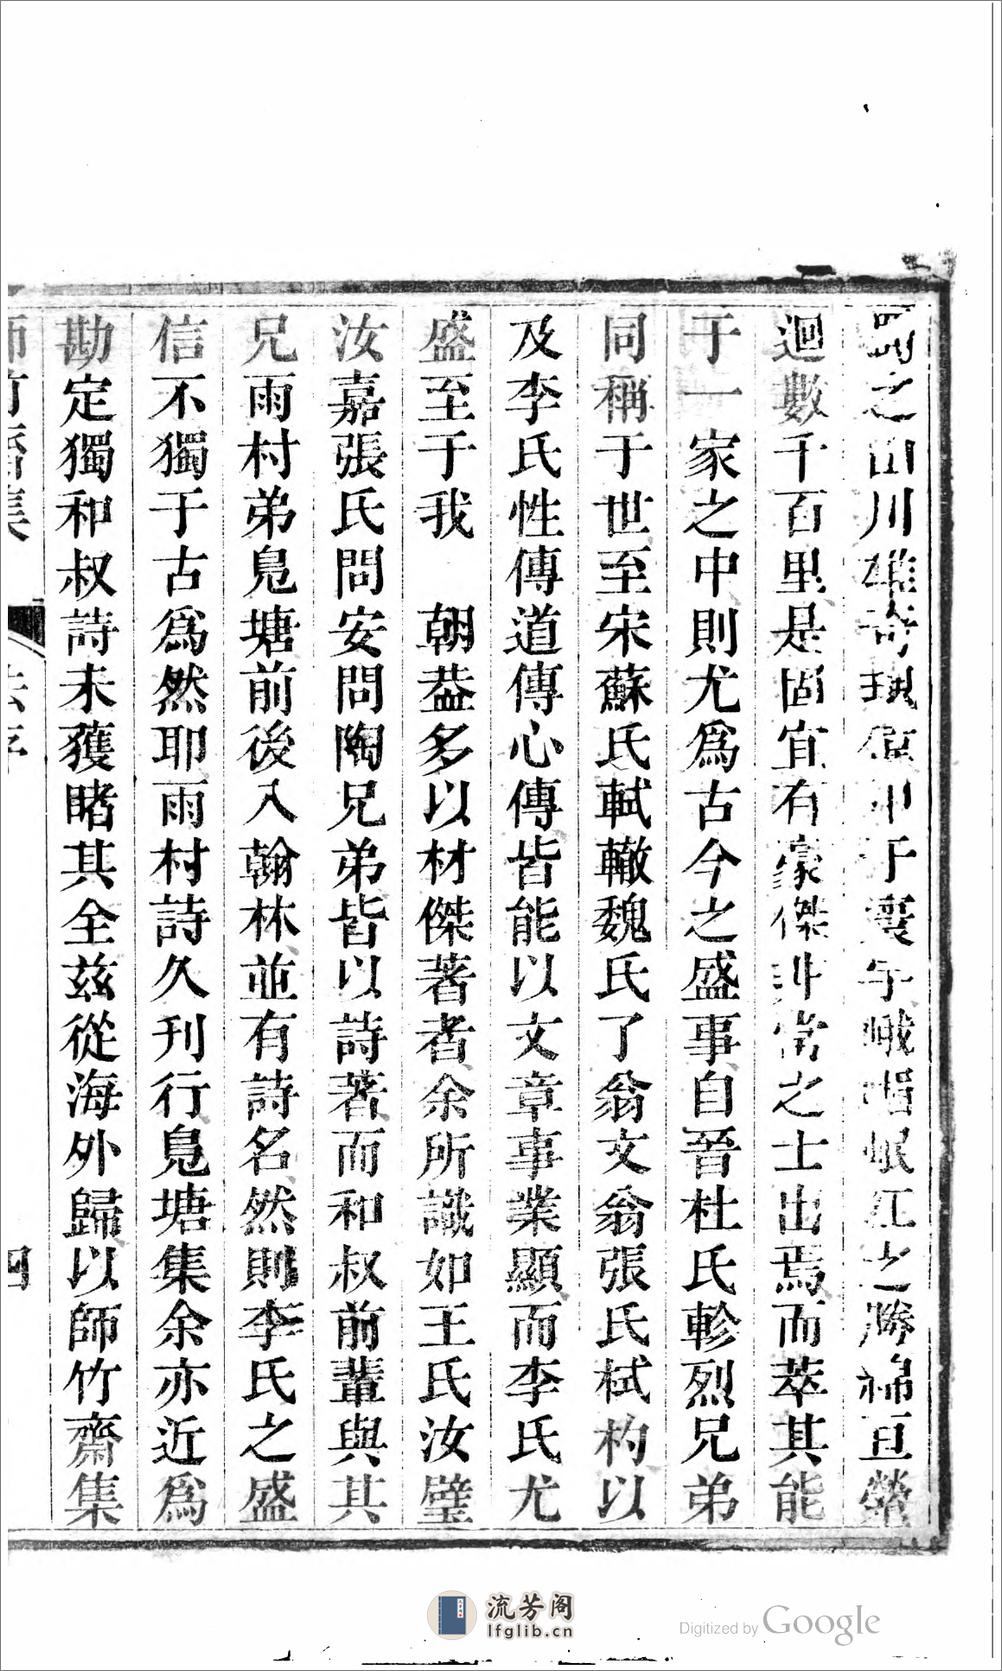 蜀之山川雄奇瑰偉甲于寰宇峨嵋岷江之勝綿亘縈
迴數千百里是固宜有豪傑非常之士出焉而萃其能
于一家之中則尤爲古今之盛事自晉杜氏軫烈兄弟
同稱于世至宋蘇氏軾轍魏氏了翁文翁張氏栻杓以
及李氏性傳道傳心傳皆能以文章事業顯而李氏尤
盛至于我　朝葢多以材傑著者余所識如王氏汝璧
汝嘉張氏問安問陶兄弟皆以詩著而和叔前輩與其
兄雨村弟鳧塘前後入翰林並有詩名然則李氏之盛
信不獨于古爲然耶雨村詩久刊行鳧塘集余亦近爲
勘定獨和叔詩未獲睹其全茲從海外歸以師竹齋集
師竹齋集
法序
四
流芳阁
lfglib.cn
Digitized by Google